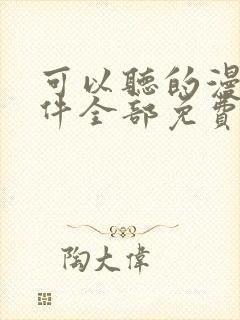 可以聽的漫
件全部免費
陶大偉